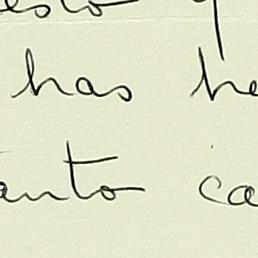 esto
has he
anto ca